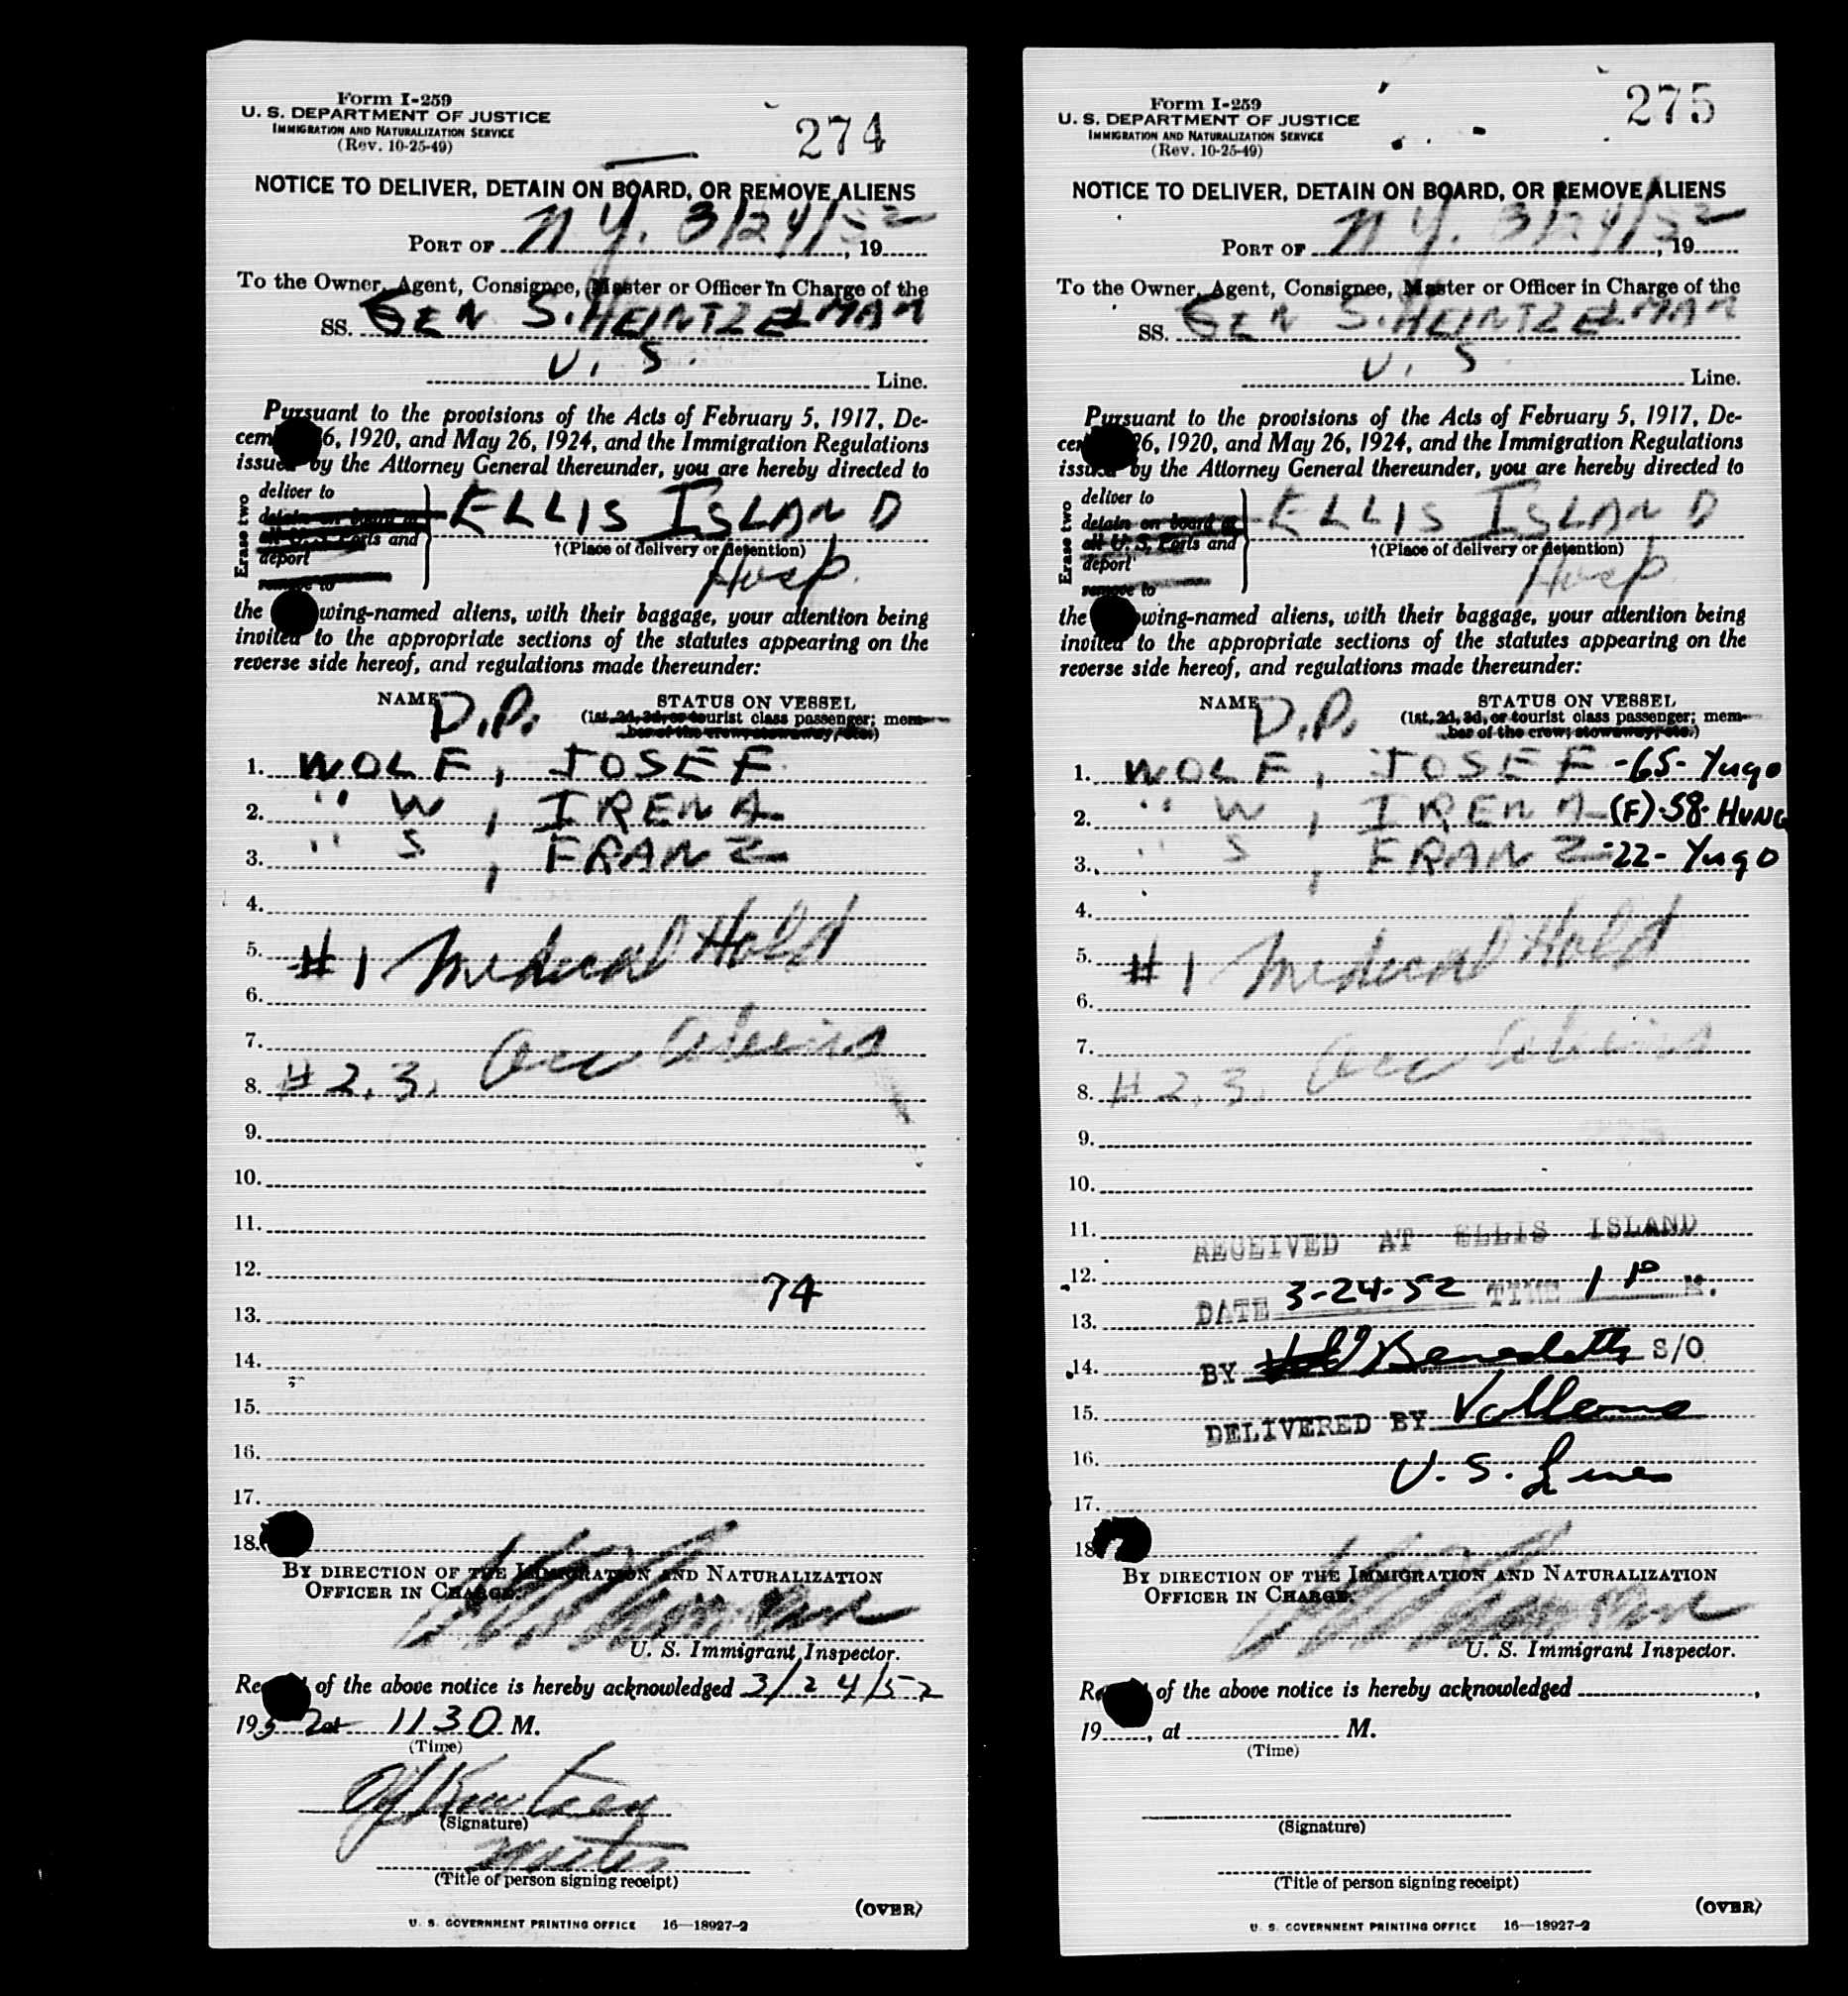 Form I-259
U. S. DEPARTMENT OF JUSTICE
IMMIGRATION AND NATURALIZATION SERVICE
(Rev. 10-25-49)
274
NOTICE TO DELIVER, DETAIN ON BOARD, OR REMOVE ALIENS
PORT OF N. Y. 3/24/52, 19
To the Owner, Agent, Consignee, Master or Officer in Charge of the
SS. GEN S. HEINTZELMAN
U. S. Line.
Pursuant to the provisions of the Acts of February 5, 1917, De-
cem 6, 1920, and May 26, 1924, and the Immigration Regulations
issued by the Attorney General thereunder, you are hereby directed to
Erase two
deliver to
detain on board at
all U. S. Ports and
deport
remove to
ELLIS ISLAND
†(Place of delivery or detention)
Hosp.
the wing-named aliens, with their baggage, your attention being
invited to the appropriate sections of the statutes appearing on the
reverse side hereof, and regulations made thereunder:
NAME D.P. STATUS ON VESSEL
(1st, 2d, 3d, or tourist class passenger; mem-
ber of the crew; stowaway, etc.)
1. WOLF, JOSEF
2. " W, IRENA
3. " S, FRANZ
4.
5. #1 Medical Hold
6.
7.
8. #2, 3. Acc Aliens
9.
10.
11.
12.
74
13.
14.
15.
16.
17.
18.
BY DIRECTION OF THE IMMIGRATION AND NATURALIZATION
OFFICER IN CHARGE.
U. S. Immigrant Inspector.
Re of the above notice is hereby acknowledged 3/24/52
1952 at 1130 M.
(Time)
(Signature)
Master
(Title of person signing receipt)
(OVER)
U. S. GOVERNMENT PRINTING OFFICE 16—18927-2
Form I-259
U. S. DEPARTMENT OF JUSTICE
IMMIGRATION AND NATURALIZATION SERVICE
(Rev. 10-25-49)
275
NOTICE TO DELIVER, DETAIN ON BOARD, OR REMOVE ALIENS
PORT OF N. Y. 3/24/52, 19
To the Owner, Agent, Consignee, Master or Officer in Charge of the
SS. GEN S. HEINTZELMAN
U. S Line.
Pursuant to the provisions of the Acts of February 5, 1917, De-
cem 26, 1920, and May 26, 1924, and the Immigration Regulations
issued by the Attorney General thereunder, you are hereby directed to
Erase two
deliver to
detain on board at
all U. S. Ports and
deport
remove to
ELLIS ISLAND
†(Place of delivery or detention)
Hosp
the wing-named aliens, with their baggage, your attention being
invited to the appropriate sections of the statutes appearing on the
reverse side hereof, and regulations made thereunder:
NAME D.P. STATUS ON VESSEL
(1st, 2d, 3d, or tourist class passenger; mem-
ber of the crew; stowaway, etc.)
1. WOLF, JOSEF -65- Yugo
2. " W, IRENA (F)-58-HUNG
3. " S, FRANZ -22- Yugo
4.
5. #1 Medical Hold
6.
7.
8. #2, 3. Acc Aliens
9.
10.
11. RECEIVED AT ELLIS ISLAND
12.
DATE 3-24-52 TIME 1 P M.
13.
14. BY Benedetto S/O
15. DELIVERED BY
16. U. S. Lines
17.
18.
BY DIRECTION OF THE IMMIGRATION AND NATURALIZATION
OFFICER IN CHARGE.
U. S. Immigrant Inspector.
Re of the above notice is hereby acknowledged ,
19 , at M.
(Time)
(Signature)
(Title of person signing receipt)
(OVER)
U. S. GOVERNMENT PRINTING OFFICE 16—18927-2